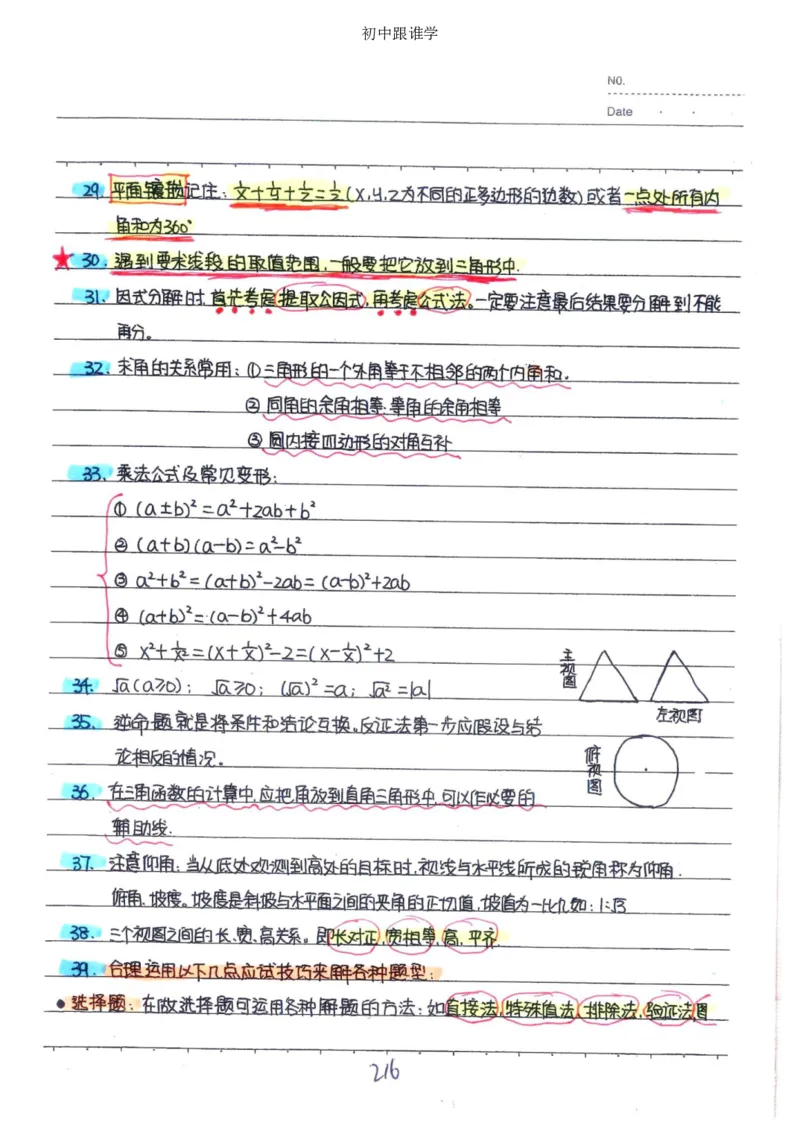 初中跟谁学
NO.
Date
29. 平面镶嵌记住: 1/x+1/y+1/z=1/2 (x,y,z为不同的正多边形的边数)或者一点处所有内
角和为360°
★30. 遇到要求线段的取值范围,一般要把它放到三角形中.
31. 因式分解时,首先考虑提取公因式,再考虑公式法。一定要注意最后结果要分解到不能
再分。
32. 求角的关系常用: ①三角形的一个外角等于不相邻的两个内角和.
② 同角的余角相等.等角的余角相等
③ 圆内接四边形的对角互补
33. 乘法公式及常见变形:
① (a±b)²=a²+2ab+b²
② (a+b)(a-b)=a²-b²
③ a²+b²=(a+b)²-2ab=(a-b)²+2ab
④ (a+b)²=(a-b)²+4ab
⑤ x²+1/x²=(x+1/x)²-2=(x-1/x)²+2
主视图
34. √a(a≥0); √a≥0; (√a)²=a; √a²=|a|
左视图
35. 逆命题就是将条件和结论互换。反证法第一步应假设与结
论相反的情况。
俯视图
36. 在三角函数的计算中,应把角放到直角三角形中,可以作必要的
辅助线.
37. 注意仰角:当从低处观测到高处的目标时,视线与水平线所成的锐角称为仰角.
俯角、坡度。坡度是斜坡与水平面之间的夹角的正切值,坡值为一比几如:1:√3
38. 三个视图之间的长、宽、高关系。即长对正,宽相等,高,平齐
39. 合理运用以下几点应试技巧来解各种题型:
●选择题:在做选择题可运用各种解题的方法:如直接法,特殊值法,排除法,验证法,图
216